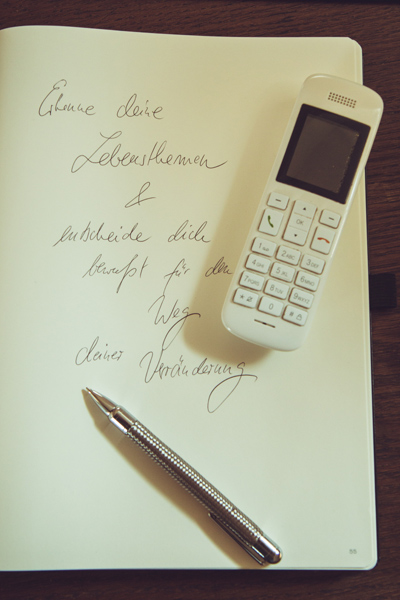 Erkenne deine
Lebensthemen
&
entscheide dich
bewußt für den
Weg
deiner Veränderung
OK
1
2ABC
3DEF
4GHI
5JKL
6MNO
7PQRS
8TUV
9WXYZ
*
0
#